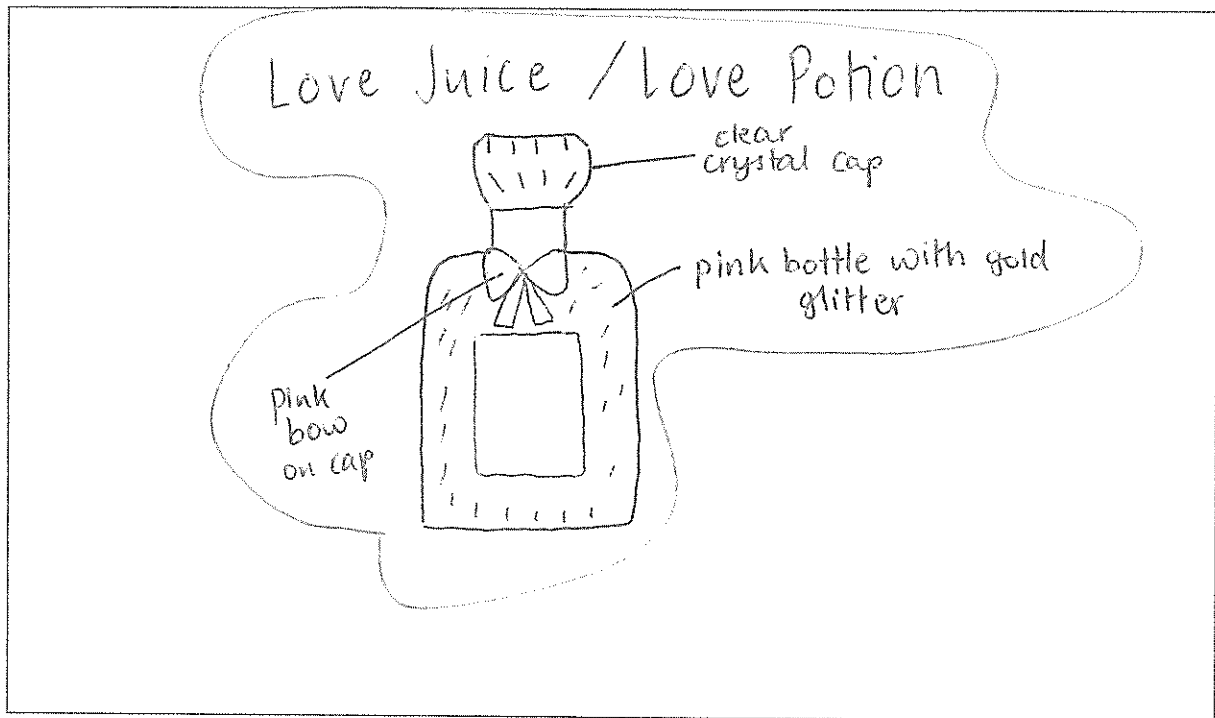 Love Juice / Love Potion
clear
crystal cap
pink bottle with gold
glitter
pink
bow
on cap